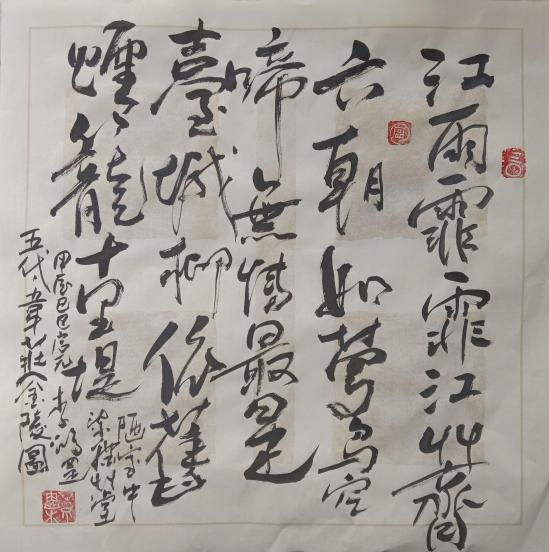 江雨霏霏江艸齊
六朝如夢鳥空
啼無情最是
臺城柳依舊
煙籠十里堤
五代韋莊金陵圖
甲辰
李
草堂